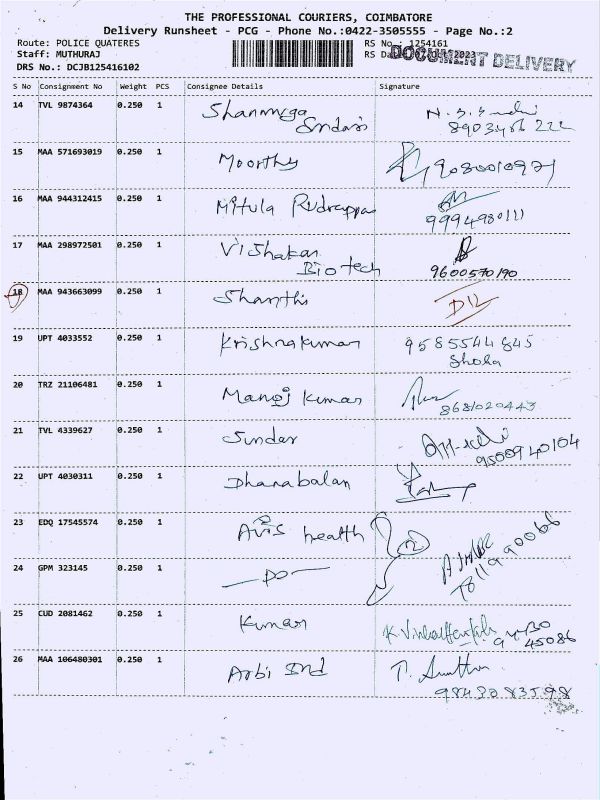 THE PROFESSIONAL COURIERS, COIMBATORE
Delivery Runsheet - PCG - Phone No.:0422-3505555 - Page No.:2
Route: POLICE QUATERES RS No.: 1254161
Staff: MUTHURAJ RS Da 2023
DOCUMENT DELIVERY
DRS No.: DCJB125416102
S No Consignment No Weight PCS Consignee Details Signature
14 TVL 9874364 0.250 1 Shanmuga
15 MAA 571693019 0.250 1 Moorthy
16 MAA 944312415 0.250 1 Mitula Rudrappa
9994980111
17 MAA 298972501 0.250 1 Vishakan
Biotech 9600570190
18 MAA 943663099 0.250 1 Shanthi
19 UPT 4033552 0.250 1 Krishnakumar 9585544845
Shola
20 TRZ 21106481 0.250 1 Manoj Kumar
8681020443
21 TVL 4339627 0.250 1 Sundar
9500940104
22 UPT 4030311 0.250 1 Dhanabalan
23 EDQ 17545574 0.250 1 Avis health
24 GPM 323145 0.250 1 -Do-
25 CUD 2081462 0.250 1 Kumar
45086
26 MAA 106480301 0.250 1 Arbi Ind